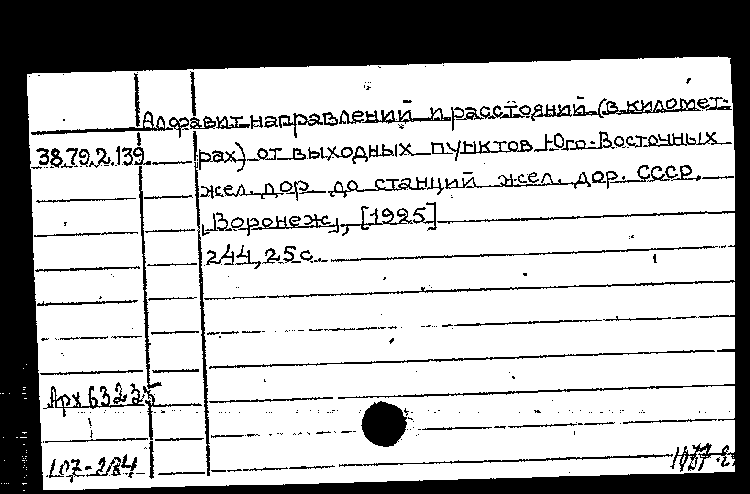 Алфавит направлений и расстояний (в километ-
38.79.2.139 рах) от выходных пунктов Юго-Восточных
жел. дор. до станций жел. дор. СССР.
[Воронеж], [1925]
244, 25 с.
Арх 63235
107-284